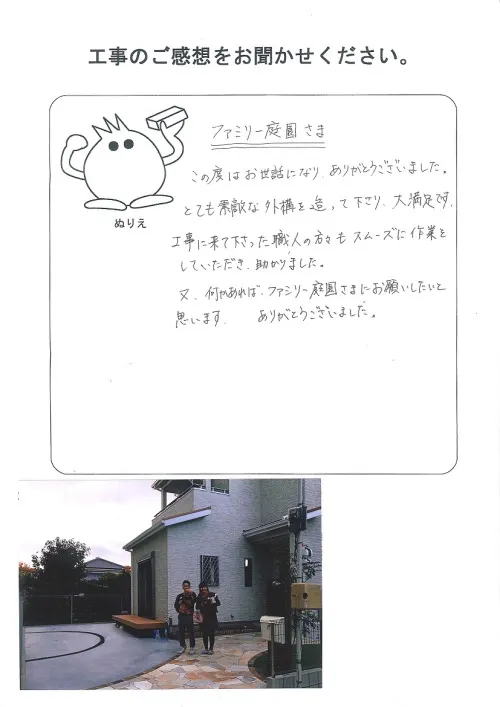 工事のご感想をお聞かせください。
ファミリー庭園さま
この度はお世話になり、ありがとうございました。
とても素敵な外構を造って下さり、大満足です。
工事に来て下さった職人の方々もスムーズに作業を
していただき、助かりました。
又、何かあれば、ファミリー庭園さまにお願いしたいと
思います。 ありがとうございました。
ぬりえ